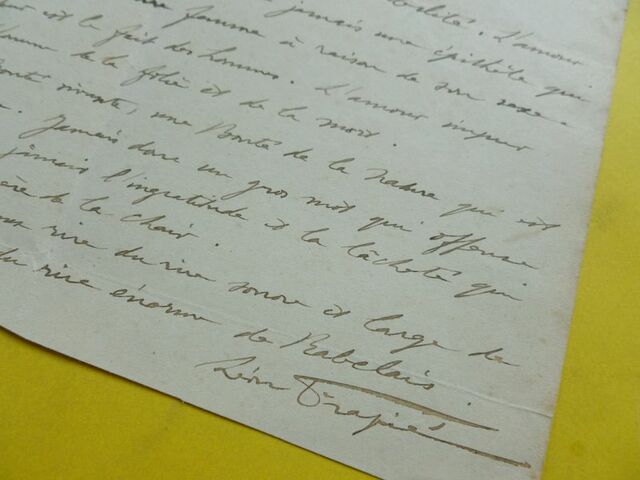 L'amour
jamais une épithète qui
femme à raison de son sexe.
est le fait des hommes. L'amour impur
de la folie et de la mort.
Bonté vivante, une Bonté de la nature qui est
Jamais donc un gros mot qui offense
jamais l'ingratitude et la lâcheté qui
de la chair.
rire du rire sonore et large de
du rire énorme de Rabelais.
Léon Frapié